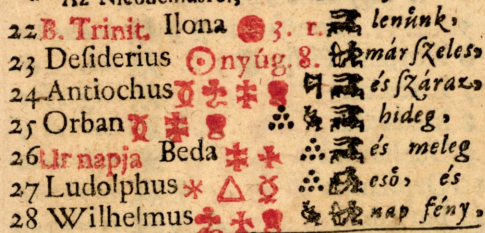 22 B. Trinit. Ilona 3. r. lenűnk,
23 Deſiderius ☉ nyúg. 8. már ſzeles,
24 Antiochus és ſzáraz,
25 Orban hideg,
26 Ur napja Beda és meleg
27 Ludolphus eső, és
28 Wilhelmus nap fény,